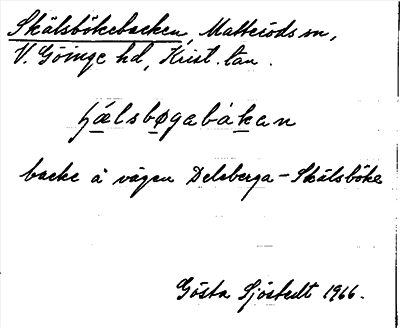 Skälsbökebacken, Matteröds sn,
V. Göinge hd, Krist. län.
hälsbøgabákan
backe å vägen Deleberga-Skälsböke
Gösta Sjöstedt 1966.